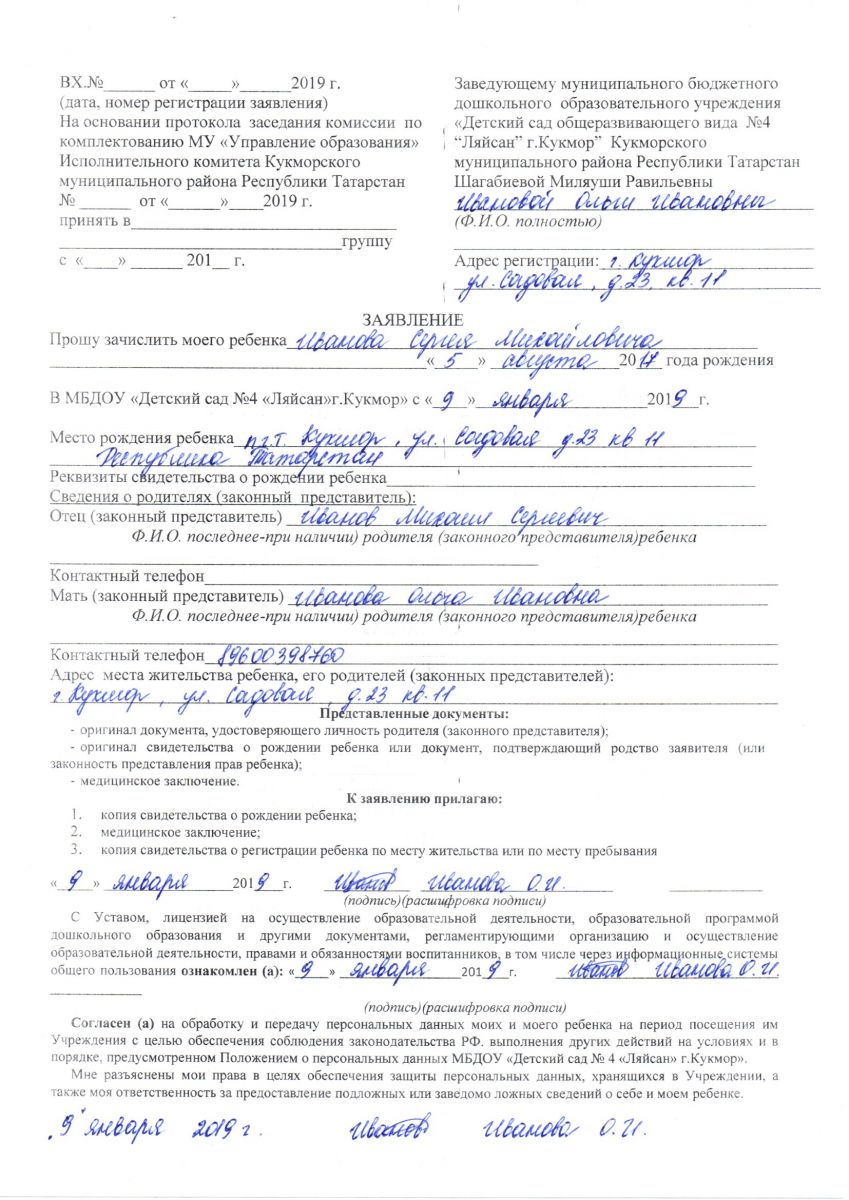 ВХ.№______ от «_____»______2019 г.
(дата, номер регистрации заявления)
На основании протокола заседания комиссии по
комплектованию МУ «Управление образования»
Исполнительного комитета Кукморского
муниципального района Республики Татарстан
№ ______ от «______»____2019 г.
принять в______________________________
________________________________группу
с «____» ______ 201__ г.
Заведующему муниципального бюджетного
дошкольного образовательного учреждения
«Детский сад общеразвивающего вида №4
“Ляйсан” г.Кукмор” Кукморского
муниципального района Республики Татарстан
Шагабиевой Миляуши Равильевны
Ивановой Ольги Ивановны
(Ф.И.О. полностью)
Адрес регистрации: г. Кукмор
ул. Садовая, д.23, кв. 11
ЗАЯВЛЕНИЕ
Прошу зачислить моего ребенка Иванова Сергея Михайловича
« 5 » августа 2017 года рождения
В МБДОУ «Детский сад №4 «Ляйсан»г.Кукмор» с « 9 » января 2019 г.
Место рождения ребенка п.г.т. Кукмор, ул. Садовая д.23 кв 11
Республика Татарстан
Реквизиты свидетельства о рождении ребенка
Сведения о родителях (законный представитель):
Отец (законный представитель) Иванов Михаил Сергеевич
Ф.И.О. последнее-при наличии) родителя (законного представителя)ребенка
Контактный телефон
Мать (законный представитель) Иванова Ольга Ивановна
Ф.И.О. последнее-при наличии) родителя (законного представителя)ребенка
Контактный телефон 89600398760
Адрес места жительства ребенка, его родителей (законных представителей):
г Кукмор, ул. Садовая, д.23 кв. 11
Представленные документы:
- оригинал документа, удостоверяющего личность родителя (законного представителя);
- оригинал свидетельства о рождении ребенка или документ, подтверждающий родство заявителя (или
законность представления прав ребенка);
- медицинское заключение.
К заявлению прилагаю:
1. копия свидетельства о рождении ребенка;
2. медицинское заключение;
3. копия свидетельства о регистрации ребенка по месту жительства или по месту пребывания
« 9 » января 2019 г. Иванова О.И.
(подпись)(расшифровка подписи)
С Уставом, лицензией на осуществление образовательной деятельности, образовательной программой
дошкольного образования и другими документами, регламентирующими организацию и осуществление
образовательной деятельности, правами и обязанностями воспитанников, в том числе через информационные системы
общего пользования ознакомлен (а): « 9 » января 2019 г. Иванова О.И.
(подпись)(расшифровка подписи)
Согласен (а) на обработку и передачу персональных данных моих и моего ребенка на период посещения им
Учреждения с целью обеспечения соблюдения законодательства РФ. выполнения других действий на условиях и в
порядке, предусмотренном Положением о персональных данных МБДОУ «Детский сад № 4 «Ляйсан» г.Кукмор».
Мне разъяснены мои права в целях обеспечения защиты персональных данных, хранящихся в Учреждении, а
также моя ответственность за предоставление подложных или заведомо ложных сведений о себе и моем ребенке.
„9" января 2019 г. Иванова О.И.